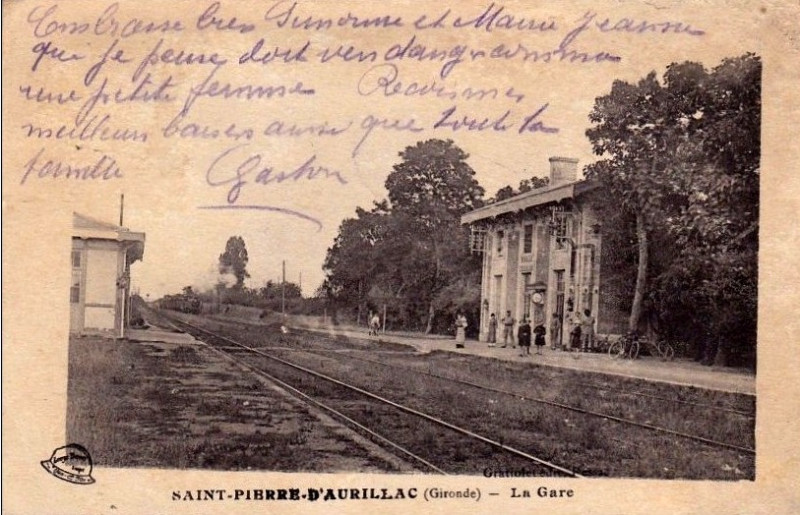 Embrasse bien Simonne et Marie Jeanne
que je pense doit vendanger comme
une petite femme Recois mes
meilleurs baisers ainsi que toute la
famille Gaston
Gratiolet édit.
SAINT-PIERRE-D'AURILLAC (Gironde) — La Gare